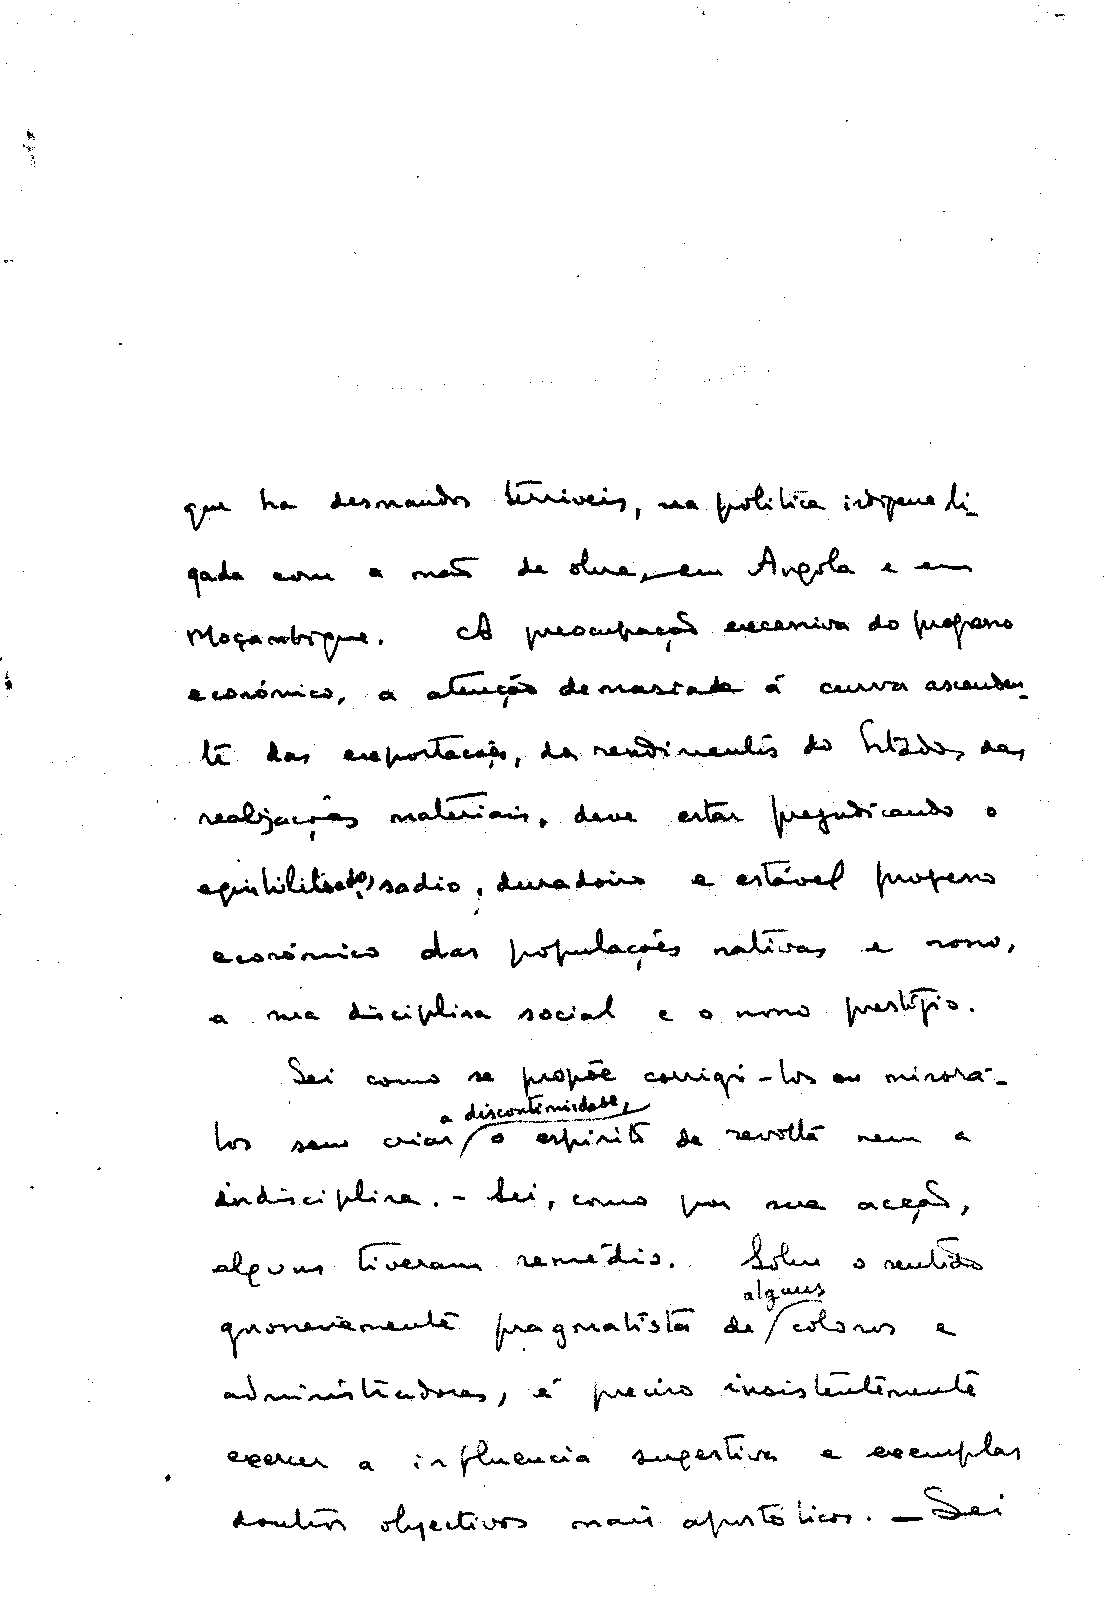 que ha desmandos terriveis, na politica indigena li-
gada com a mão de obra, em Angola e em
Moçambique. A preocupação excessiva do progresso
económico, a atenção demasiada á curva ascenden-
te das exportações, dos rendimentos do Estado, das
realizações materiais, deve estar prejudicando o
equilibrado, sadio, duradoiro e estável progresso
económico das populações nativas e nosso,
a sua disciplina social e o nosso prestígio.
Sei como se propõe corrigi-los ou minorá-
a discontinuidade,
los sem criar o espirito de revolta nem a
indisciplina. - Sei, como por sua acção,
alguns tiveram remédio. Sobre o sentido
alguns
grosseiramente pragmatista de colonos e
administradores, é preciso insistentemente
exercer a influencia sugestiva e exemplar
doutros objectivos mais apostólicos. - Sei